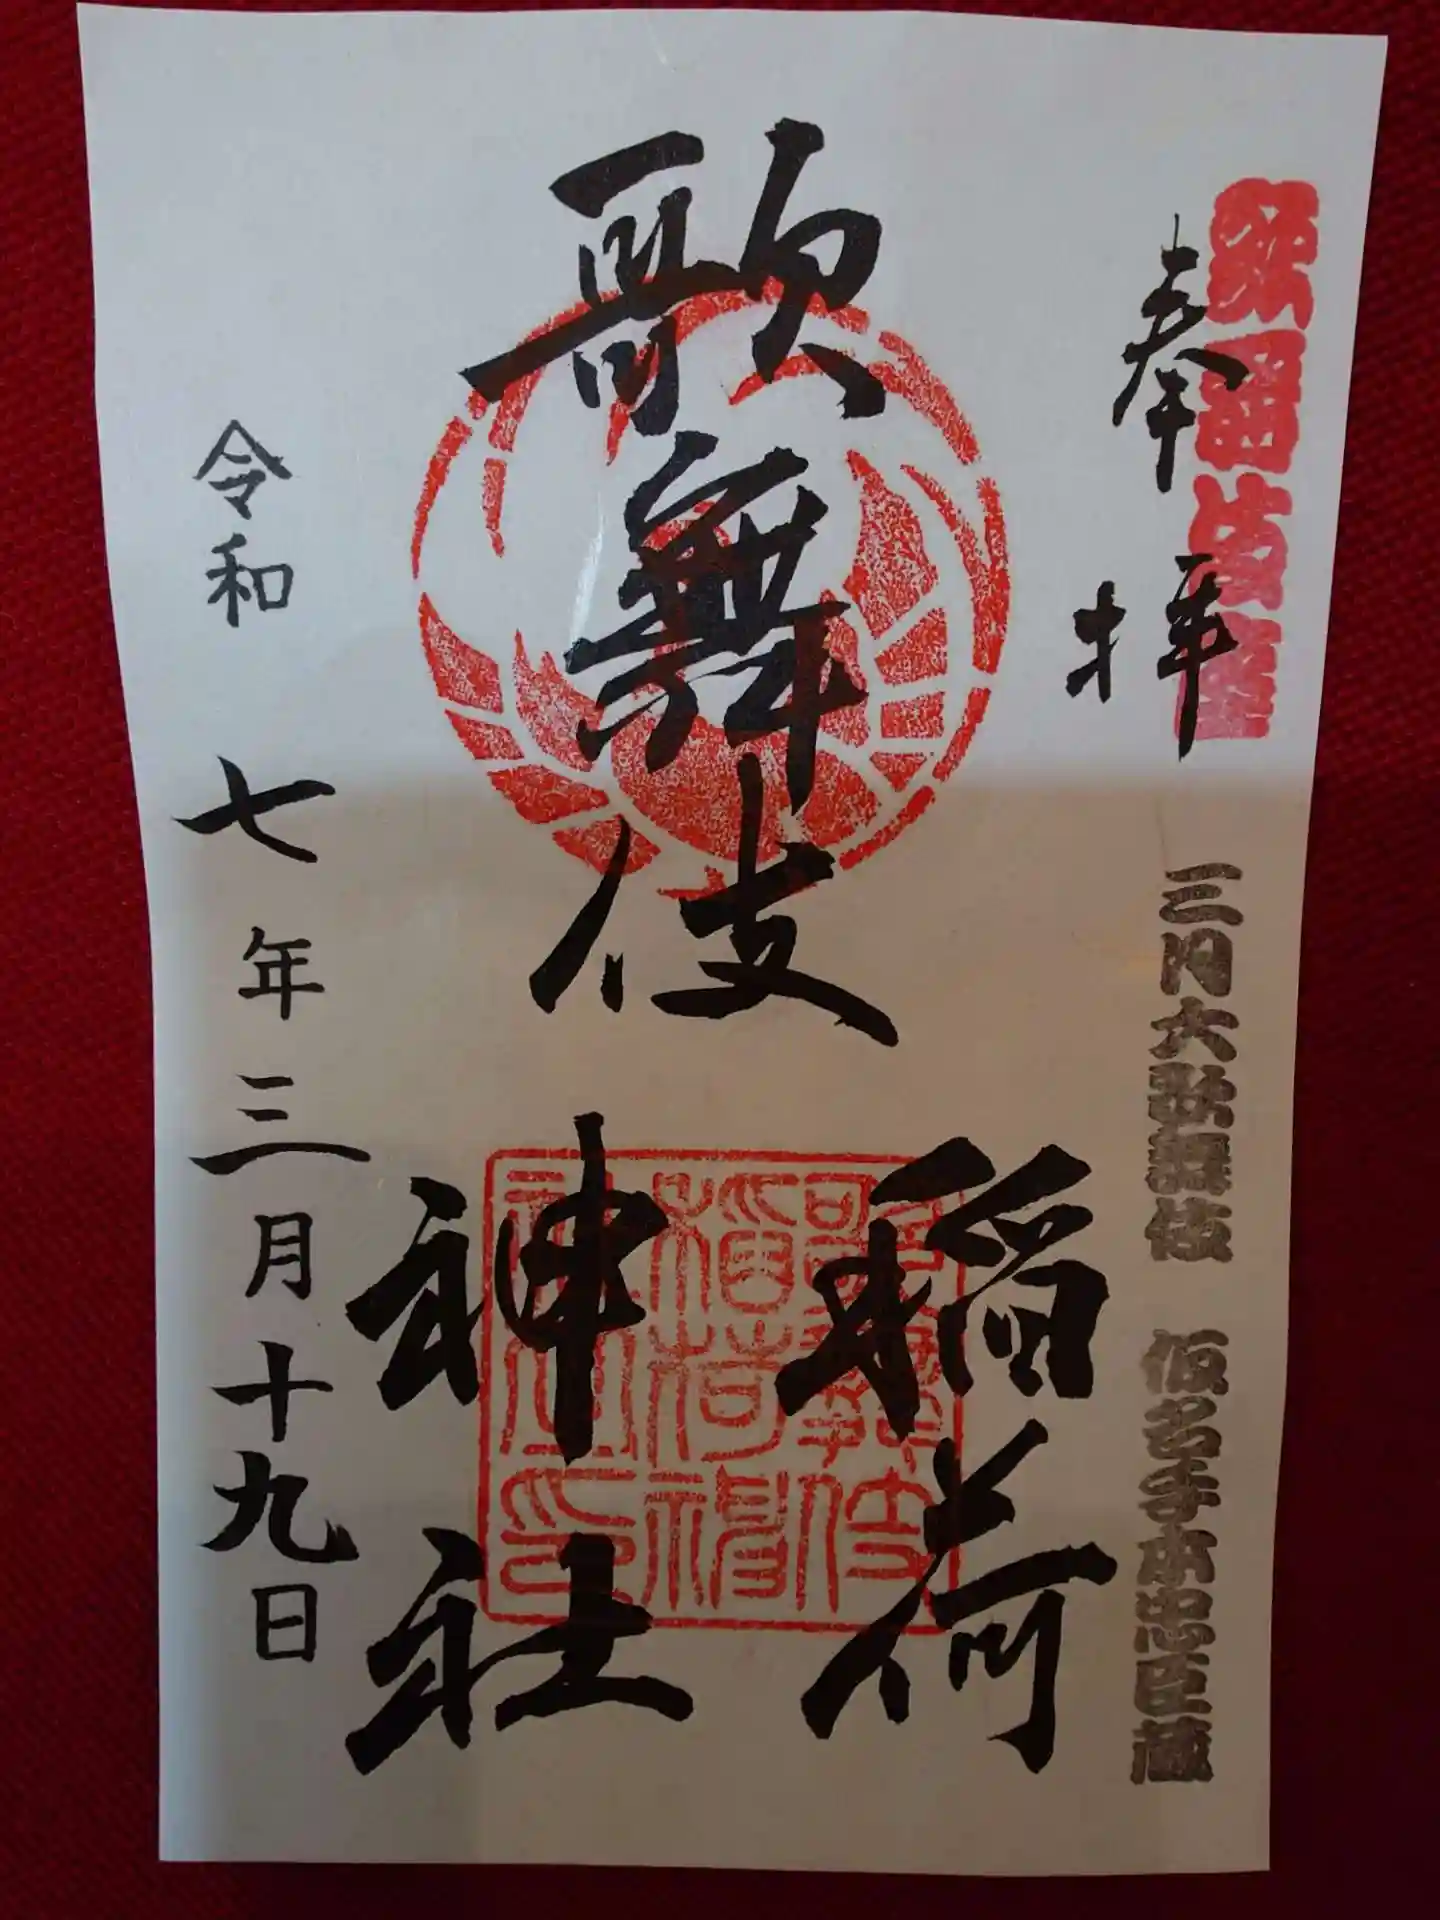 歌舞伎座
奉拝
三月大歌舞伎 仮名手本忠臣蔵
歌舞伎
稲荷
神社
歌舞伎
稲荷神
社之印
令和七年三月十九日